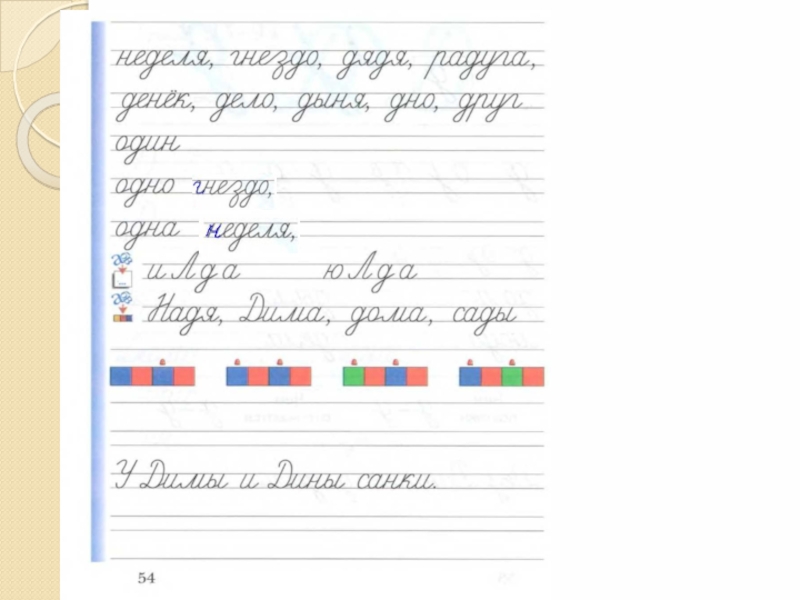 неделя, гнездо, дядя, радуга,
денёк, дело, дыня, дно, друг
один
одно гнездо,
одна неделя,
и Л д а ю Л д а
Надя, Дима, дома, сады
У Димы и Дины санки.
54